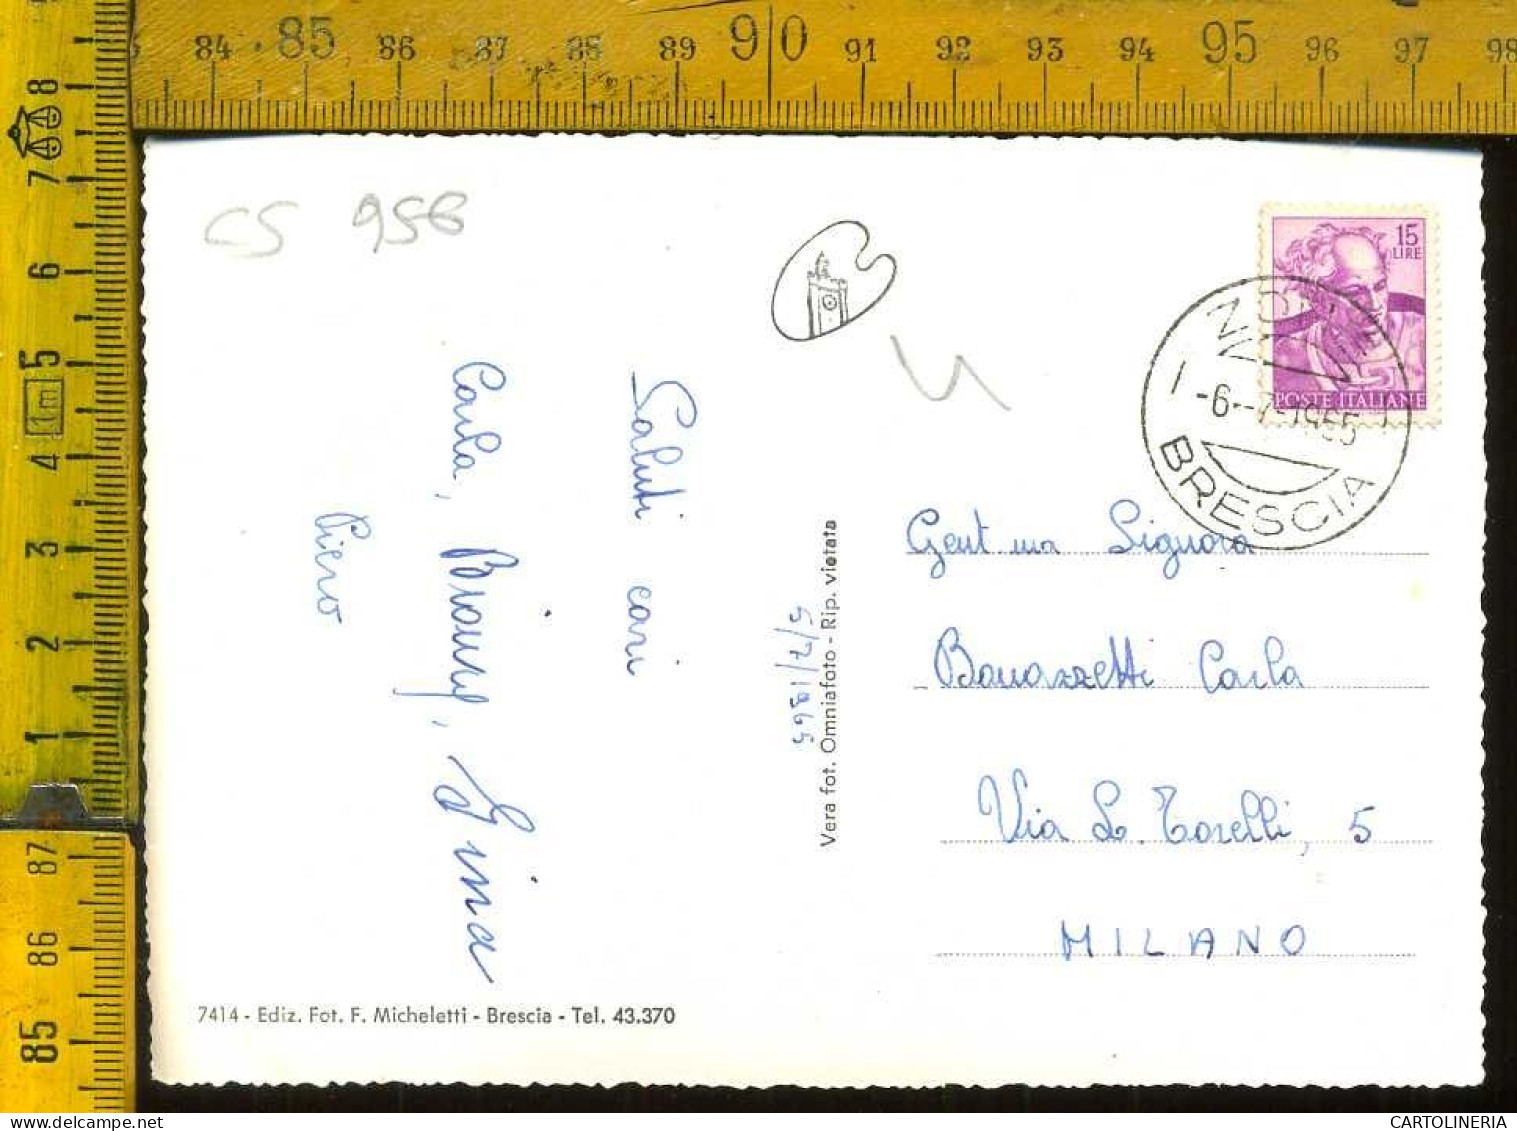 84 85 86 87 88 89 90 91 92 93 94 95 96 97 98
8
7
6
5
1m
4
3
2
1
87
86
85
CS 956
15
LIRE
POSTE ITALIANE
-6.-7-1965
BRESCIA
Saluti cari
Carla, Gina
Piero
5/7/1965
Vera fot. Omniafoto - Rip. vietata
Gent ma Signora
Bonazzetti Carla
Via L. Torelli, 5
MILANO
7414 - Ediz. Fot. F. Micheletti - Brescia - Tel. 43.370
CARTOLINERIA